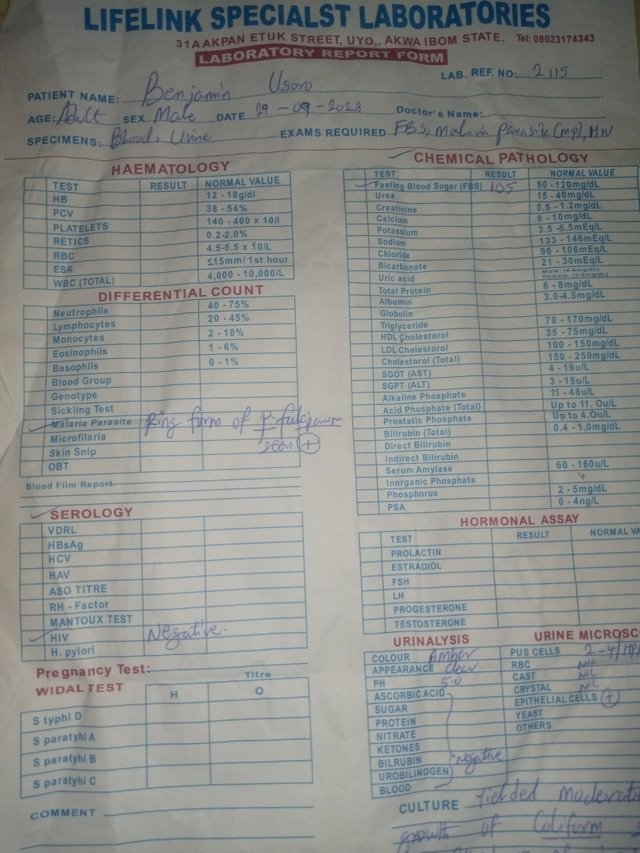 LIFELINK SPECIALST LABORATORIES
31A AKPAN ETUK STREET, UYO,. AKWA IBOM STATE. Tel: 08023174343
LABORATORY REPORT FORM
LAB. REF. NO: 2115
PATIENT NAME: Benjamin Usoro
AGE: Adult SEX Male DATE 29-09-2023 Doctor's Name:
SPECIMENS: Blood, Urine EXAMS REQUIRED FBS, Malaria Parasite (mp), HIV
HAEMATOLOGY
TEST RESULT NORMAL VALUE
HB 12 - 18g/dl
PCV 38 - 54%
PLATELETS 140 - 400 x 10/l
RETICS 0.2-2.0%
RBC 4.5-5.5 x 10/L
ESR ≤15mm/ 1st hour
WBC (TOTAL) 4,000 - 10,000/L
DIFFERENTIAL COUNT
Neutrophils 40 - 75%
Lymphocytes 20 - 45%
Monocytes 2 - 10%
Eosinophils 1 - 6%
Basophils 0 - 1%
Blood Group
Genotype
Sickling Test
Malaria Parasite Ring form of P. falciparum
Microfilaria seen +
Skin Snip
OBT
Blood Film Report
SEROLOGY
VDRL
HBsAg
HCV
HAV
ASO TITRE
RH - Factor
MANTOUX TEST
HIV Negative.
H. pylori
Pregnancy Test:
WIDAL TEST Titre
H O
S typhi D
S paratyhi A
S paratyhi B
S paratyhi C
COMMENT
CHEMICAL PATHOLOGY
TEST RESULT NORMAL VALUE
Fasting Blood Sugar (FBS) 105 60 - 120mg/dL
Urea 15 - 40mg/dL
Creatinine 0.5 - 1.2mg/dL
Calcium 8 - 10mg/dL
Potassium 3.5 -5.5mEq/L
Sodium 133 - 146mEq/L
Chloride 96 - 106mEq/L
Bicarbonate 21 - 30mEq/L
Uric acid
Total Protein 6 - 8mg/dL
Albumin 3.0-4.5mg/dL
Globulin
Triglyceride 70 - 170mg/dL
HDL Cholestorol 35 - 75mg/dL
LDL Cholestorol 100 - 150mg/dL
Cholestorol (Total) 150 - 250mg/dL
SGOT (AST) 4 - 19u/L
SGPT (ALT) 3 - 15u/L
Alkaline Phosphate 11 - 48u/L
Acid Phosphate (Total) Up to 11. Ou/L
Prostatic Phosphate Up to 4.Ou/L
Bilirubin (Total) 0.4 - 1.0mg/dL
Direct Bilirubin
Indirect Bilirubin
Serum Amylase 60 - 160u/L
Inorganic Phosphate
Phosphorus 2 - 5mg/dL
PSA 0 - 4ng/L
HORMONAL ASSAY
TEST RESULT NORMAL VA
PROLACTIN
ESTRADIOL
FSH
LH
PROGESTERONE
TESTOSTERONE
URINALYSIS
COLOUR Amber
APPEARANCE Clear
PH 5.0
ASCORBIC ACID
SUGAR
PROTEIN
NITRATE
KETONES
BILRUBIN Negative
UROBILINOGEN
BLOOD
URINE MICROSC
PUS CELLS 2-4/HP
RBC NIL
CAST NIL
CRYSTAL NIL
EPITHELIAL CELLS +
YEAST
OTHERS
CULTURE Yielded moderate
growth of Coliform